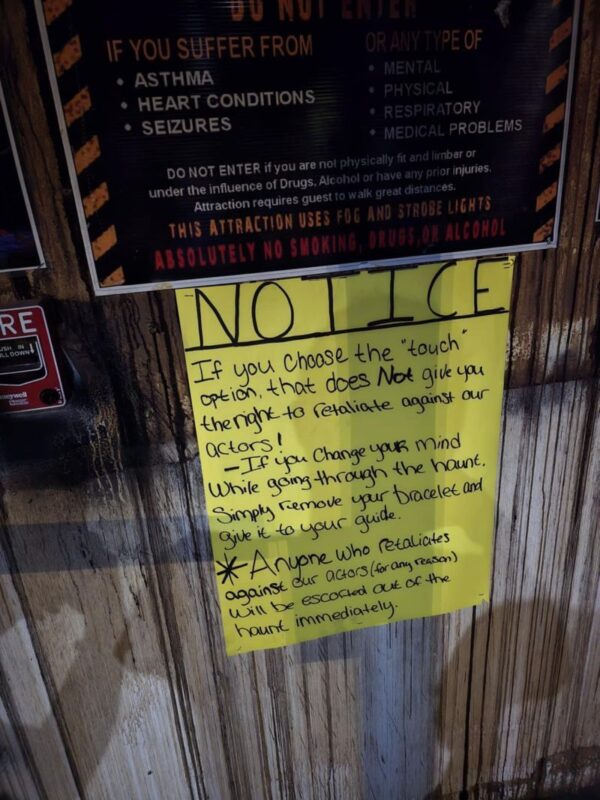 DO NOT ENTER
IF YOU SUFFER FROM
• ASTHMA
• HEART CONDITIONS
• SEIZURES
OR ANY TYPE OF
• MENTAL
• PHYSICAL
• RESPIRATORY
• MEDICAL PROBLEMS
DO NOT ENTER if you are not physically fit and limber or
under the influence of Drugs, Alcohol or have any prior injuries.
Attraction requires guest to walk great distances.
THIS ATTRACTION USES FOG AND STROBE LIGHTS
ABSOLUTELY NO SMOKING, DRUGS, OR ALCOHOL
RE
NOTICE
If you Choose the "touch"
option, that does Not give you
the right to retaliate against our
actors!
- If you Change your mind
While going through the haunt.
Simply remove your bracelet and
give it to your guide.
* Anyone who retaliates
against our actors (for any reason)
will be escorted out of the
haunt immediately.